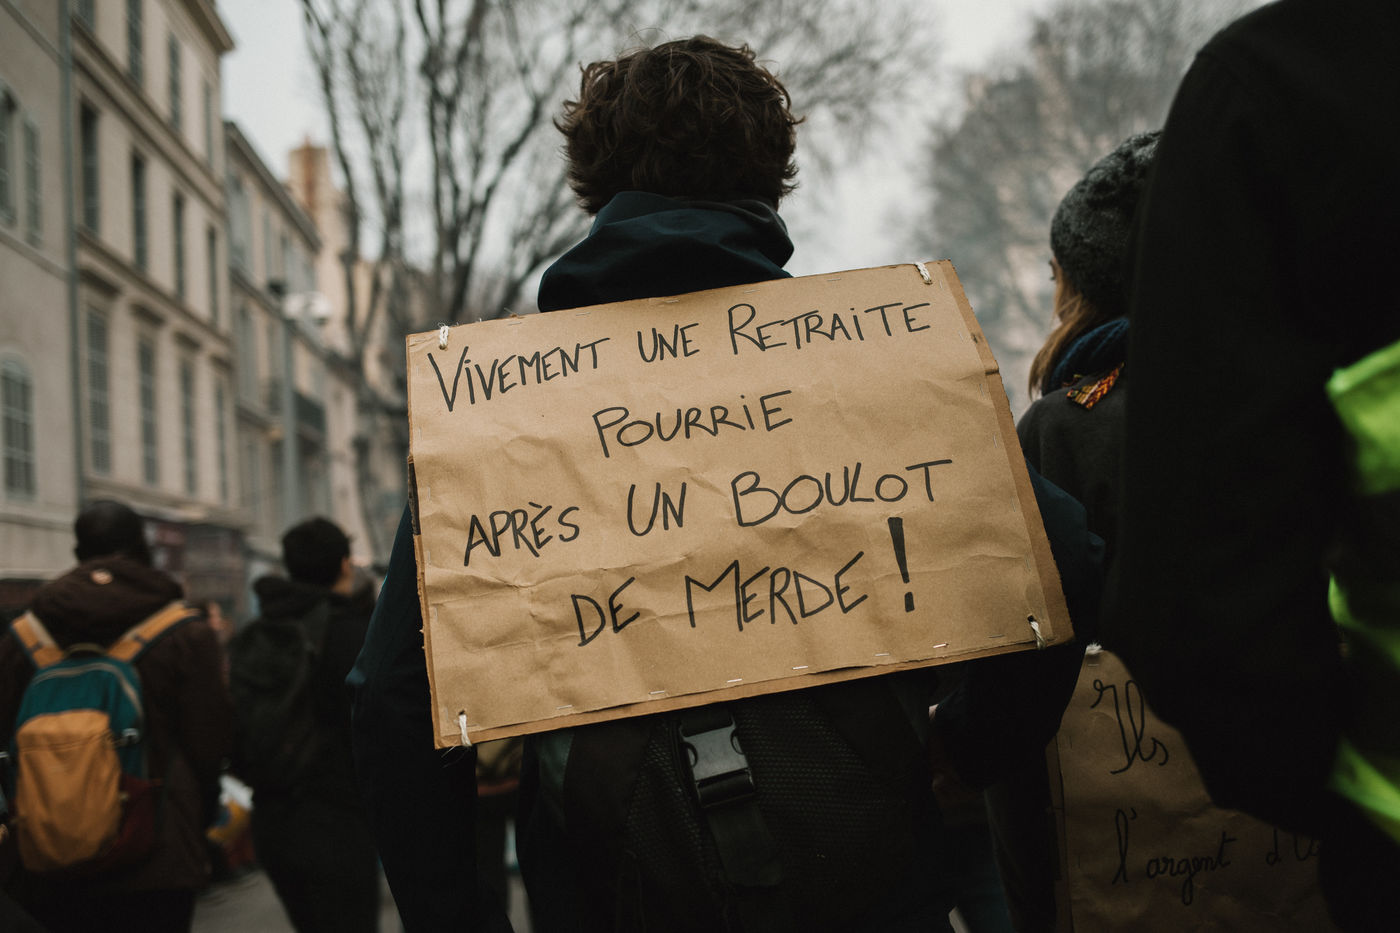 VIVEMENT UNE RETRAITE
POURRIE
APRÈS UN BOULOT
DE MERDE !
Ils
l'argent